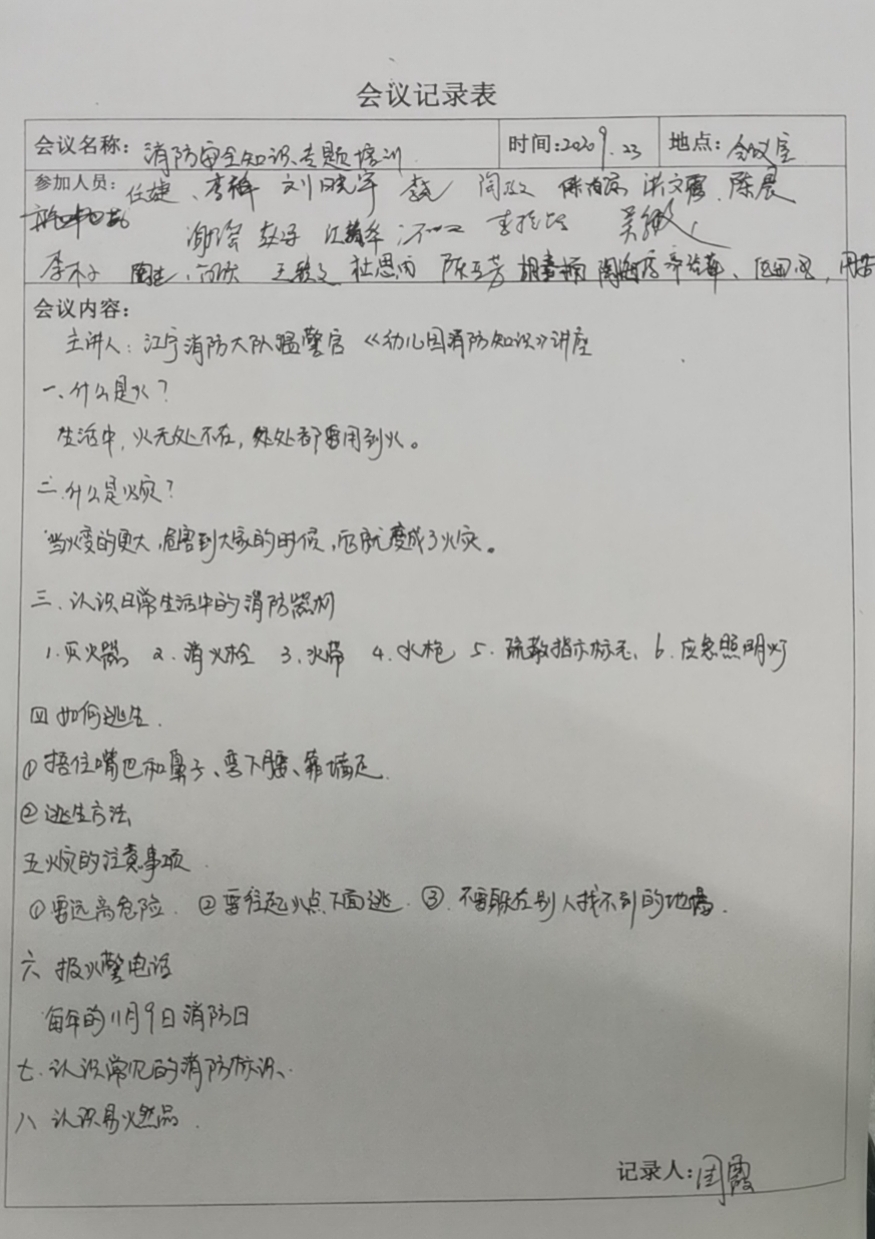 会议记录表
会议名称: 消防安全知识专题培训 时间:2020 9.23 地点: 会议室
参加人员: 任婕、李梅 刘晓宇 洪文霞 陈晨
吴敏
李 杜思雨 陈玉芳
会议内容:
主讲人: 江宁消防大队温警官 《幼儿园消防知识》讲座
一、什么是火?
生活中,火无处不在,处处都要用到火。
二.什么是火灾?
当火变的更大,危害到大家的时候,它就变成了火灾。
三.认识日常生活中的消防器材
1.灭火器 2.消火栓 3.水带 4.水枪 5.疏散指示标志、6.应急照明灯
四 如何逃生.
①捂住嘴巴和鼻子、弯下腰、靠墙走.
②逃生方法
五 火灾的注意事项.
①要远离危险. ②要往起火点下面逃. ③.不要躲在别人找不到的地方.
六 报火警电话
每年的11月9日消防日
七.认识常见的消防标识、
八 认识易燃品.
记录人: 霞